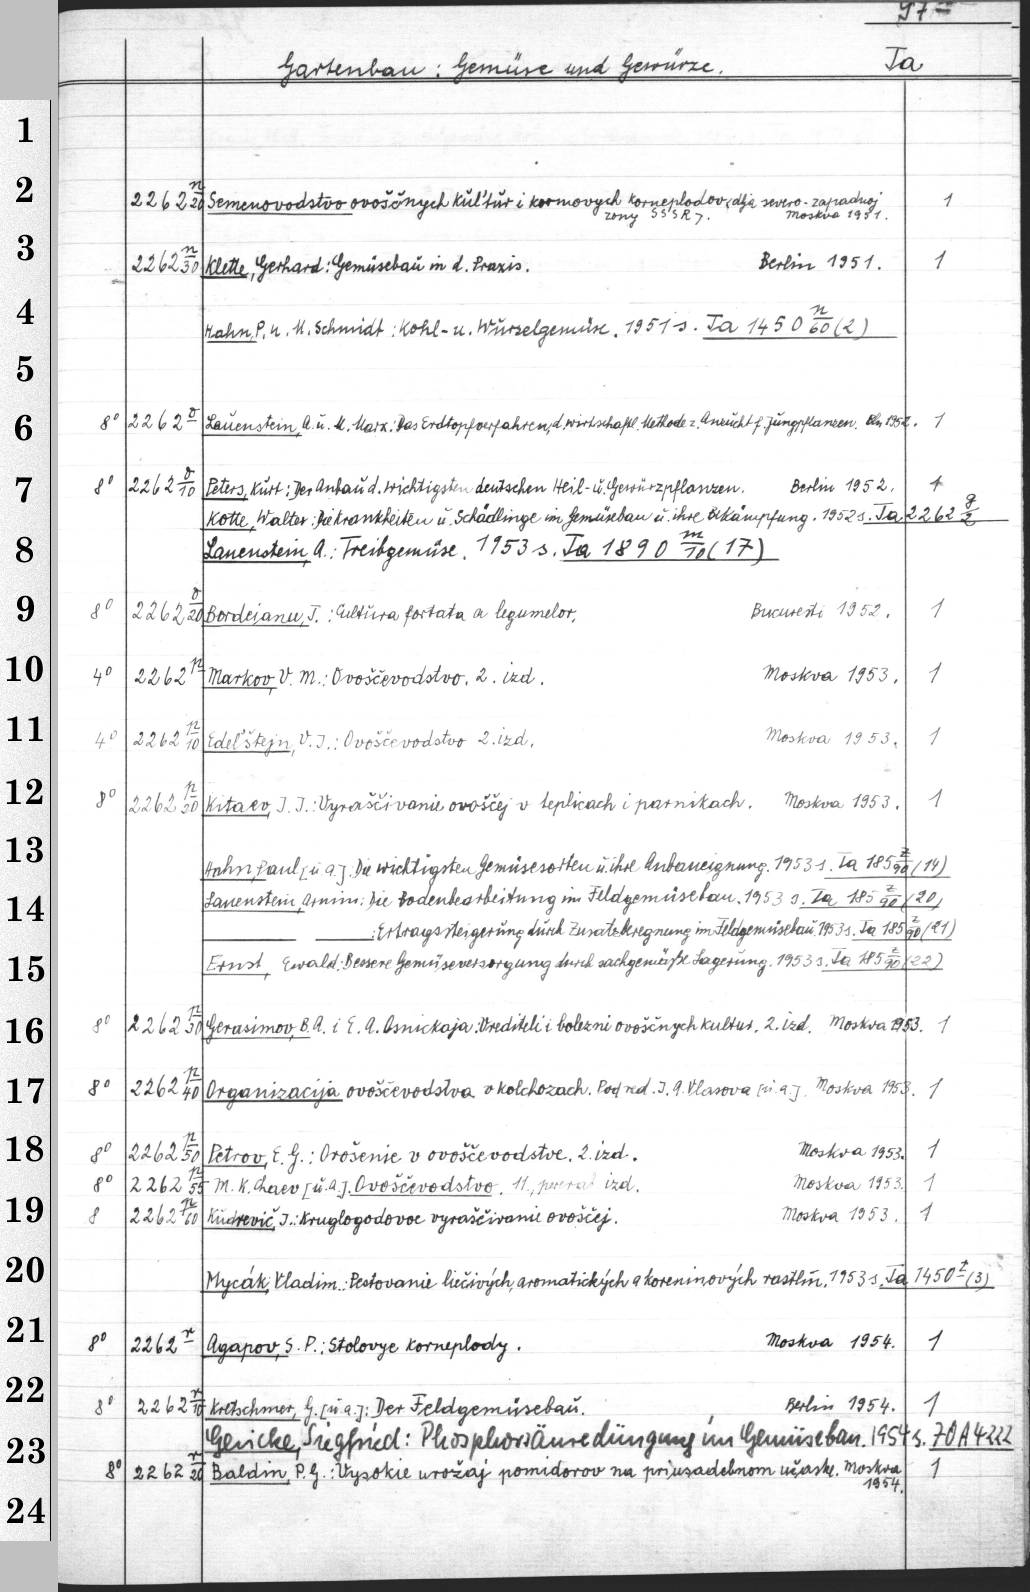 97=
Gartenbau: Gemüse und Gewürze. Ta
1
2
2262 n/20 Semenovodstvo ovoščnych kul'tur i kormovych korneplodov (dlja severo-zapadnoj 1
zony SSSR). Moskva 1951.
3
2262 n/30 Klette, Gerhard: Gemüsebau in d. Praxis. Berlin 1951. 1
4
Hahn, P. u. M. Schmidt: Kohl- u. Wurzelgemüse. 1951 s. Ta 1450 n/60 (2)
5
6
8° 2262 o Lauenstein, A. u. M. Marx: Das Erdtopfverfahren, d. wirtschaftl. Methode z. Anzucht f. Jungpflanzen. Bln 1952. 1
7
8° 2262 o/10 Peters, Kurt: Der Anbau d. wichtigsten deutschen Heil- u. Gewürzpflanzen. Berlin 1952. 1
Kotte, Walter: Die Krankheiten u. Schädlinge im Gemüsebau u. ihre Bekämpfung. 1952 s. Ta 2262 g/2
8
Lauenstein, A.: Treibgemüse. 1953 s. Ta 1890 m/10 (17)
9
8° 2262 o/20 Bordeianu, T.: Cultura fortata a legumelor. Bucuresti 1952. 1
10
4° 2262 p Markov, V. M.: Ovoščevodstvo. 2. izd. Moskva 1953. 1
11
4° 2262 p/10 Edel'štejn, V. I.: Ovoščevodstvo 2. izd. Moskva 1953. 1
12
8° 2262 p/20 Kitaev, I. I.: Vyraščivanie ovoščej v teplicach i parnikach. Moskva 1953. 1
13
Hahn, Paul [u. a.]: Die wichtigsten Gemüsesorten u. ihre Anbaueignung. 1953 s. Ta 185 z/90 (19)
14
Lauenstein, Armin: Die Bodenbearbeitung im Feldgemüsebau. 1953 s. Ta 185 z/90 (20)
——— ———: Ertragssteigerung durch Zusatzberegnung im Feldgemüsebau. 1953 s. Ta 185 z/90 (21)
15
Ernst, Ewald: Bessere Gemüseversorgung durch sachgemäße Lagerung. 1953 s. Ta 185 z/90 (22)
16
8° 2262 p/30 Gerasimov, B. A. i E. A. Osnickaja: Vrediteli i bolezni ovoščnych kultur. 2. izd. Moskva 1953. 1
17
8° 2262 p/40 Organizacija ovoščevodstva v kolchozach. Pod red. I. A. Vlasova [u. a.]. Moskva 1953. 1
18
8° 2262 p/50 Petrov, E. G.: Orošenie v ovoščevodstve. 2. izd. Moskva 1953. 1
8° 2262 p/55 M. K. Chaev [u. a.]. Ovoščevodstvo. 11., pererab izd. Moskva 1953. 1
19
8 2262 p/60 Kudrevič, I.: Kruglogodovoe vyraščivanie ovoščej. Moskva 1953. 1
20
Mycák, Vladim.: Pestovanie liečivých, aromatických a koreninových rastlín. 1953 s. Ta 1450 t (3)
21
8° 2262 r Agapov, S. P.: Stolovye korneplody. Moskva 1954. 1
22
8° 2262 r/10 Kretschmer, G. [u. a.]: Der Feldgemüsebau. Berlin 1954. 1
Gericke, Siegfried: Phosphorsäuredüngung im Gemüsebau. 1954 s. 70 A 4222
23
8° 2262 r/20 Baldin, P. G.: Vysokie urožaj pomidorov na priusadebnom učastke. Moskva 1
1954.
24